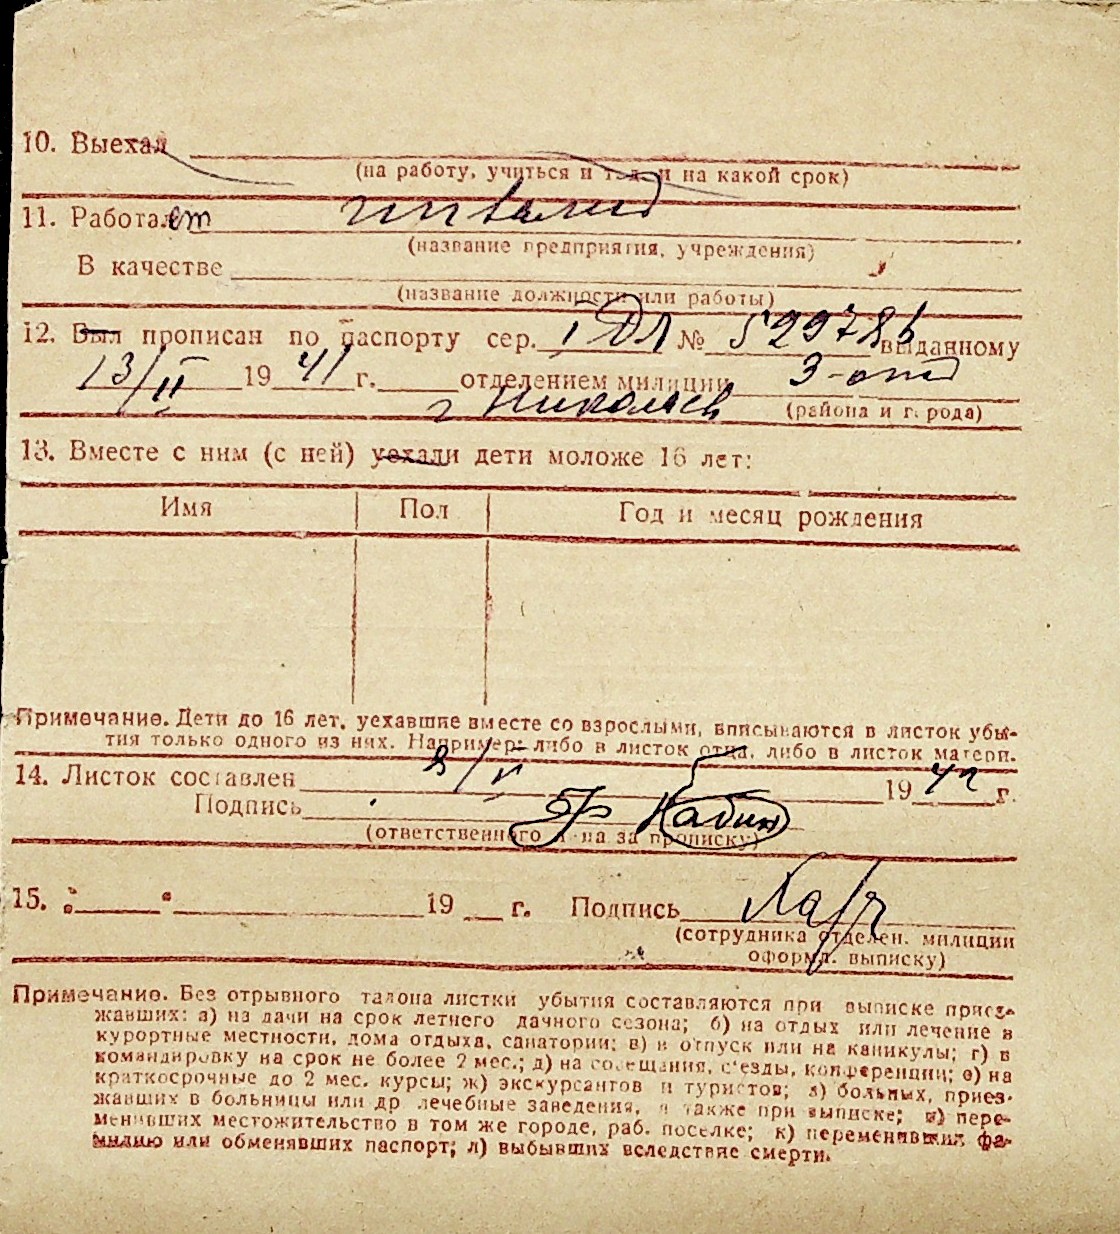 10. Выехал
(на работу, учиться и т. д. и на какой срок)
11. Работает инвалид
(название предприятия, учреждения)
В качестве
(название должности или работы)
12. Был прописан по паспорту сер. I ДЛ № 529786 выданному
13/II 1941 г. отделением милиции 3-отд
г Николаев (района и города)
13. Вместе с ним (с ней) уехали дети моложе 16 лет:
Имя Пол Год и месяц рождения
Примечание. Дети до 16 лет, уехавшие вместе со взрослыми, вписываются в листок убы-
тия только одного из них. Например: либо в листок отца, либо в листок матери.
14. Листок составлен 8/V 1942 г.
Подпись
(ответственного л-на за прописку)
15. " " 19 г. Подпись
(сотрудника отделен. милиции
оформл. выписку)
Примечание. Без отрывного талона листки убытия составляются при выписке приез-
жавших: а) на дачи на срок летнего дачного сезона; б) на отдых или лечение в
курортные местности, дома отдыха, санатории; в) в отпуск или на каникулы; г) в
командировку на срок не более 2 мес.; д) на совещания, с'езды, конференции; е) на
краткосрочные до 2 мес. курсы; ж) экскурсантов и туристов; з) больных, приез-
жавших в больницы или др лечебные заведения, а также при выписке; и) пере-
менивших местожительство в том же городе, раб. поселке; к) переменивших фа-
милию или обменявших паспорт; л) выбывших вследствие смерти.